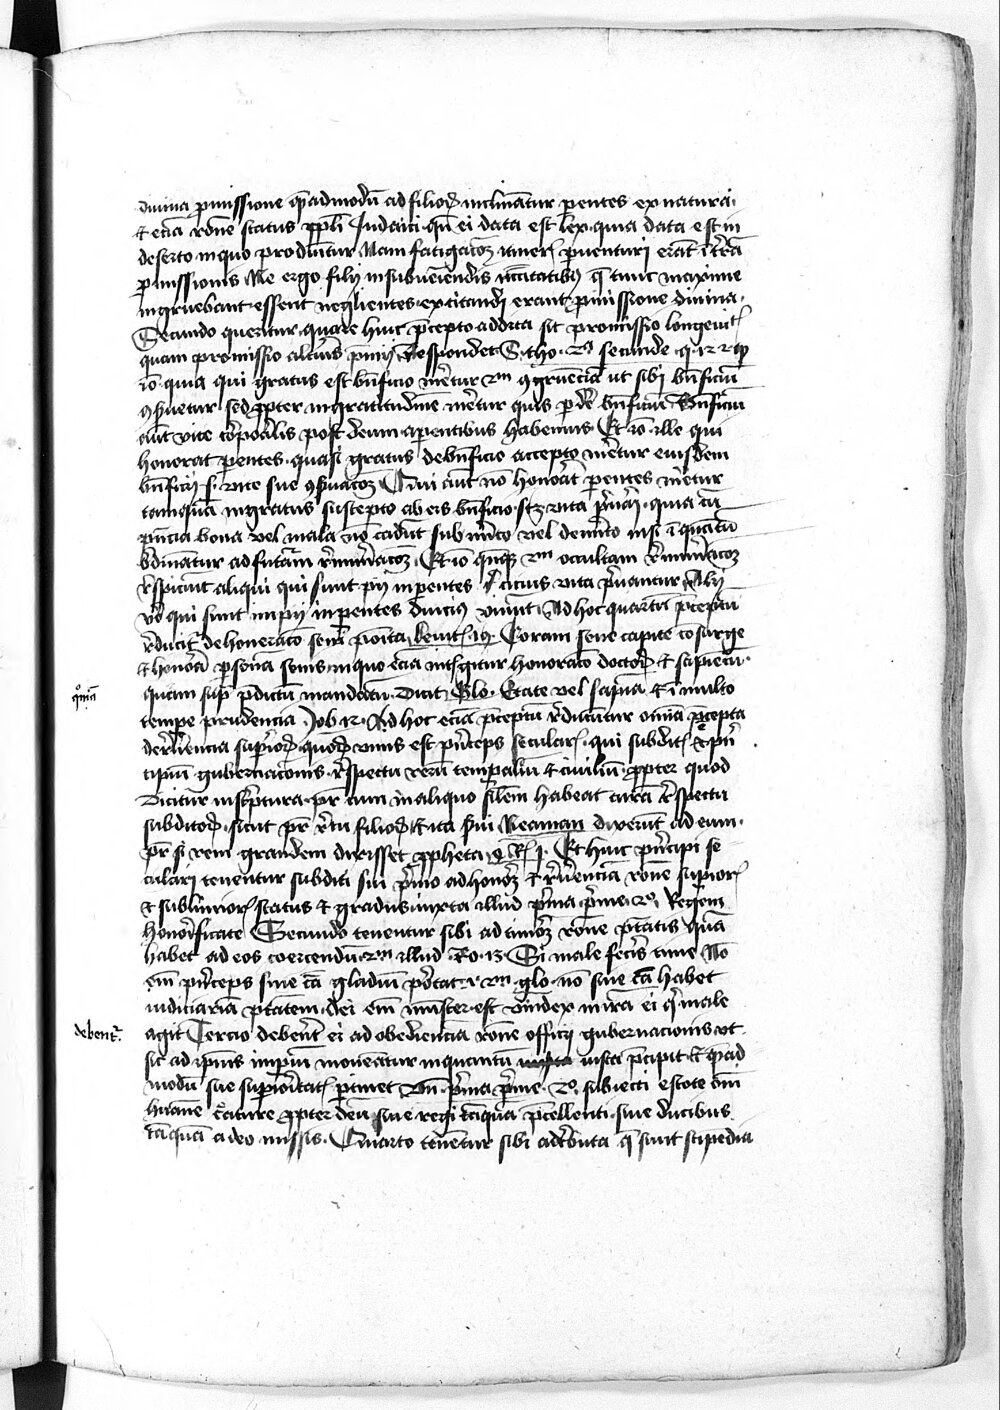 diuina promissione quemadmodū ad filioꝝ inclinatur parentes ex natura
et eciā racōne status ppli Judaici qn̄ ei data est lex quia data est in
deserto in quo prodiuntur Nam fatigacōꝫ itineris peruenturi erāt ī trā
promissionis Ne ergo filij in subueniendis necitatibus q̄ tunc maxime
ingruebant essent negligentes excitandi erant promissione diuina
Secundo queritur quare huic precepto addita sit promissio longeuitatis
quam promissio alterius premij Respondet S. tho. 2ᵃ secunde q. 122
io quia qui gratus est bn̄ficio meretur 2m ꝯgruenciā ut sibi bn̄ficiū
ꝯseruetur sed propter ingratitudinē meretur quis perdere bn̄ficiū Bn̄ficiū
aut vite corporalis post deum a parentibus habemus Et io ille qui
honorat parentes quasi gratus de bn̄ficio accepto meretur eiusdem
bn̄ficij s. vite sue ꝯseruacōꝫ Qui aut nō honorat parentes meretur
tamquā ingratus suscepto ab eis bn̄ficio scꝫ vita priuari quia tn̄
pn̄cia bona vel mala nō cadūt sub merito vel demerito nisi ī quātū
ordinantur ad futurā remuneracōꝫ Et io qn̄qꝫ 2m occultam
respiciūt aliqui qui sunt pij in parentes cicius vita priuantur Alij
vero qui sunt impij in parentes diucius viuūt Ad hoc quartū preceptū
reducitur de honoracōe senū ponita Leuit. 19. Coram seno capite cōsurge
et honora personā senis in quo eciā intelligitur honoracō doctoꝝ et sapiencū
quoniam
quam super predictū mandatū Dicit Glo. Etate vel sapīa et ī multo
tempe prudencia Job 12. Ad hoc eciā preceptū reducuntur omīa precepta
de reuerencia superioꝝ quoꝝ vnus est princeps secularis qui subditis
tipiū gubernacionis respectu rerū temporaliū et ciuiliū propter quod
Dicitur in scriptura pr̄ cum in aliquo silem habeat curā respectu
subditoꝝ sicut pr̄ filioꝝ et ita serui Neaman dixerūt ad eum
pr̄ si rem grandem dixisset propheta 4 R. 5. Et huic principi se
culari tenentur subditi sui primo ad honorē et reuerenciā racōne superioris
et sublimioris status et gradus iuxta illud prima petri 2º. Regem
honorificate Secundo tenentur sibi ad timorē racōne ptatis quā
habet ad eos coercendū 2m illud Ro. 13 Si male feceris time Nō
em̄ princeps sine cā gladiū portat 2m glo. nō sine cā habet
iudiciariā ptatem Dei em̄ minister est vindex in ira ei qui male
debent
agit Tercio debent ei ad obediencia racōne officij gubernacionis vt
sic ad ipius imperiū moueatur in quantū iusta precipit et quead
modū sue superioritatis pertinet Vn̄ prima petri 2º. subiecti estote om̄i
humane creature propter deū siue regi tāquā precellenti siue ducibus
tāquā a deo missis Quarto tenentur sibi ad tributa q̄ sunt stipedia